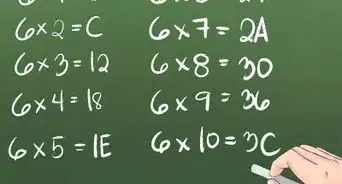 6×2=C 6×7=2A
6×3=12 6×8=30
6×4=18 6×9=36
6×5=1E 6×10=3C